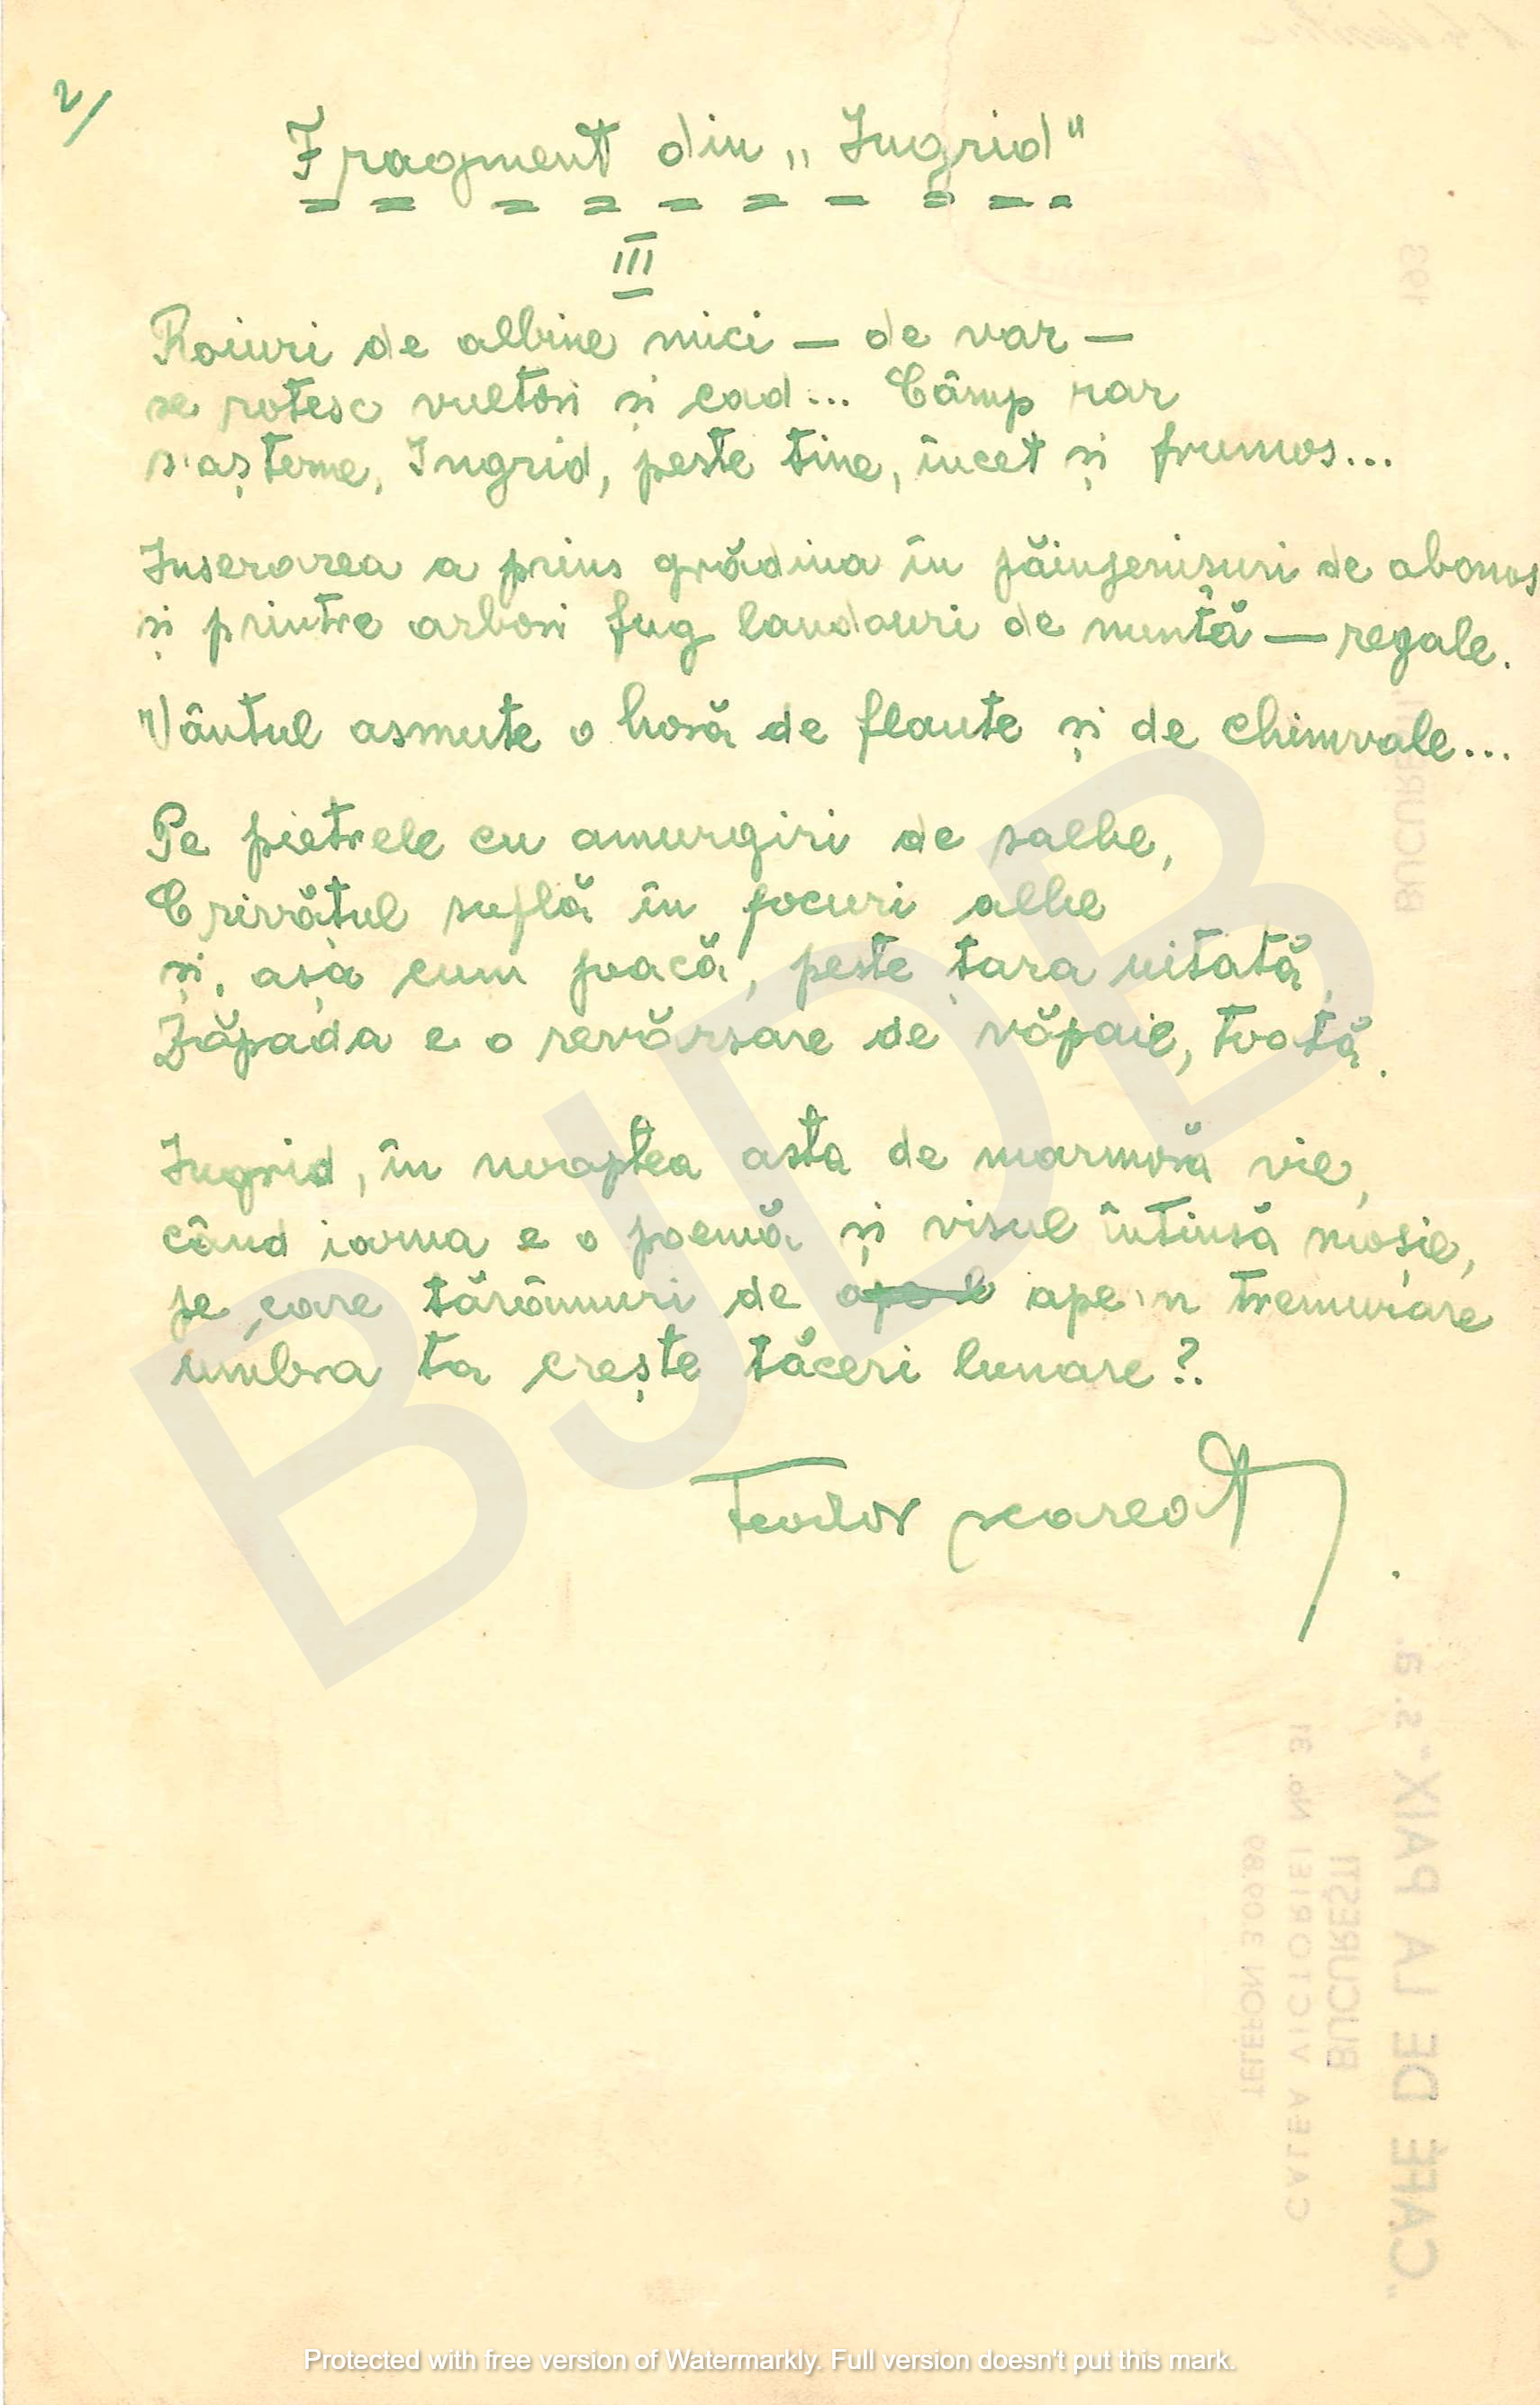 2/
Fragment din „Ingrid"
III
Roiuri de albine mici — de var —
se rotesc vultori și cad... Câmp rar
s'așterne, Ingrid, peste tine, încet și frumos...
Inserarea a prins grădina în păinjenișuri de abonos
și printre arbori fug landouri de nuntă — regale.
Vântul asmute o horă de flaute și de chimvale...
Pe pietrele cu amurgiri de salbe,
Crivățul suflă în focuri albe
și, așa cum joacă, peste țara uitată,
Zăpada e o revărsare de văpaie, toată.
Ingrid, în noaptea asta de marmoră vie,
când iarna e o poemă și visul întinsă moșie,
pe care tărâmuri de ape'n tremurare
umbra ta crește tăceri lunare?
Teodor Scarlat
193
BUCUREȘTI,
„CAFÉ DE LA PAIX" S. a.
BUCUREȘTI
CALEA VICTORIEI No. 31
TELEFON 3.09.89
BJDB
Protected with free version of Watermarkly. Full version doesn't put this mark.